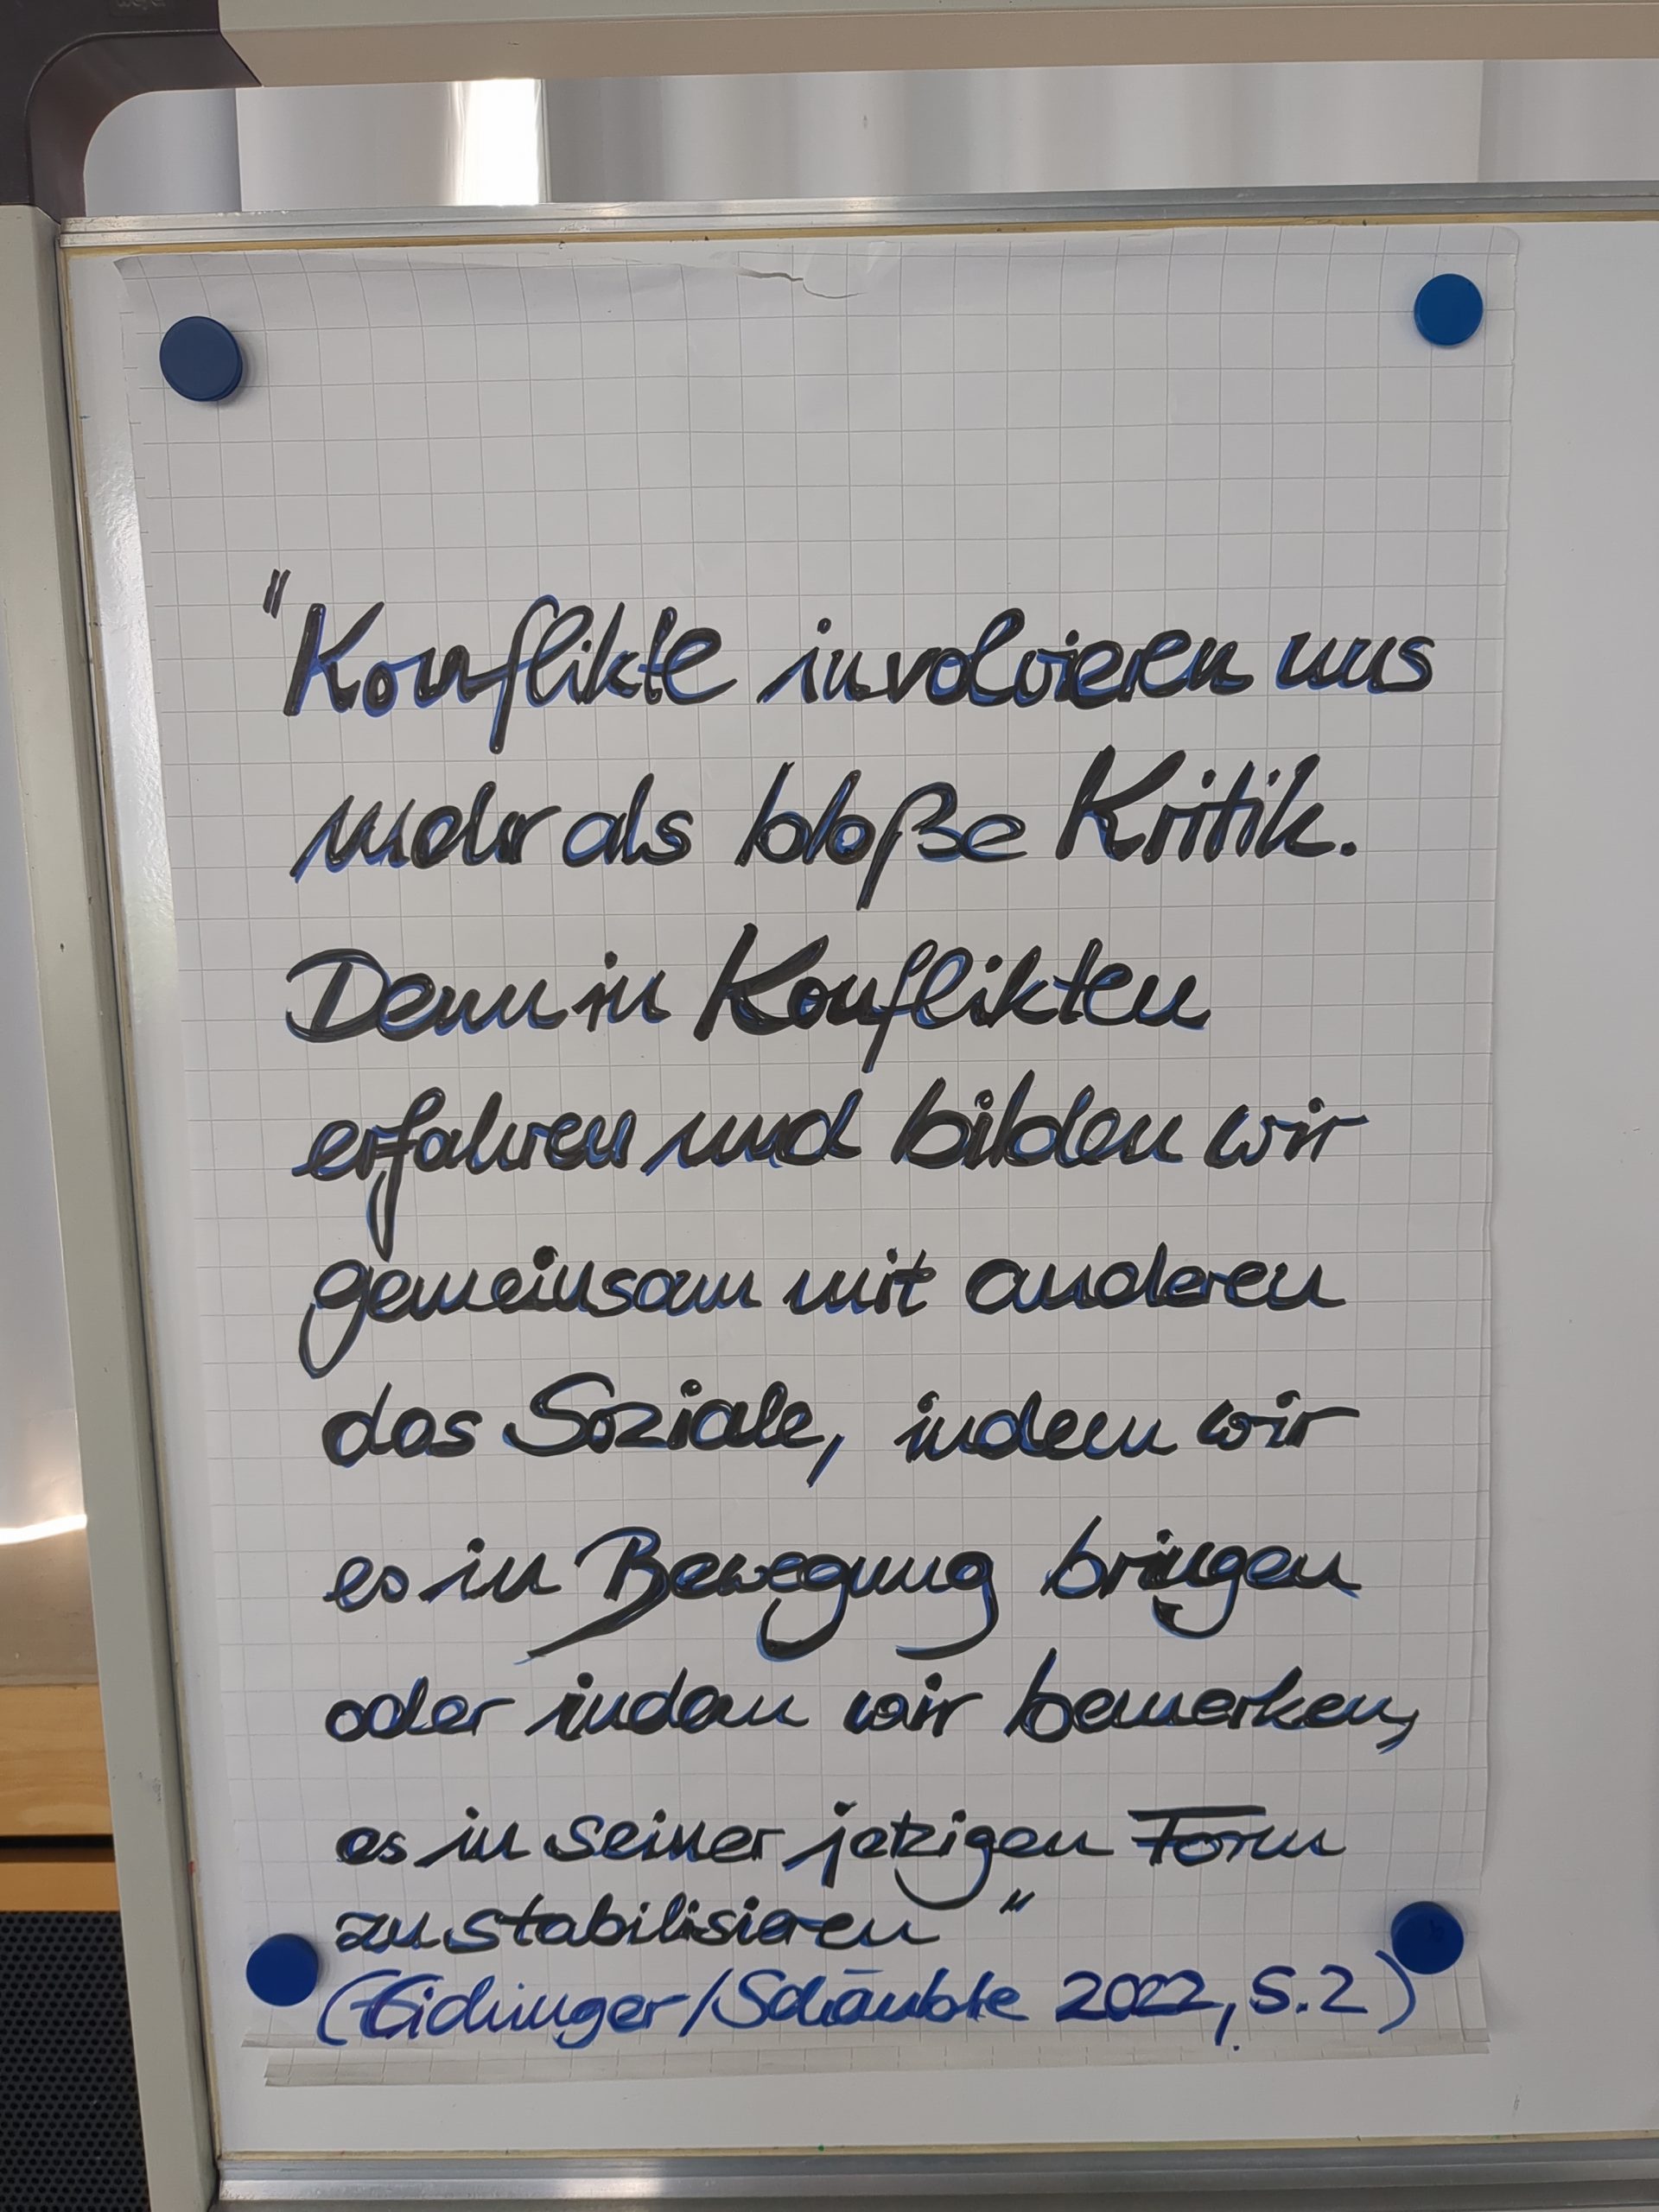 "Konflikte involvieren uns
mehr als bloße Kritik.
Denn in Konflikten
erfahren und bilden wir
gemeinsam mit anderen
das Soziale, indem wir
es in Bewegung bringen
oder indem wir bemerken,
es in seiner jetzigen Form
zu stabilisieren"
(Eichinger/Schäuble 2022, S.2)